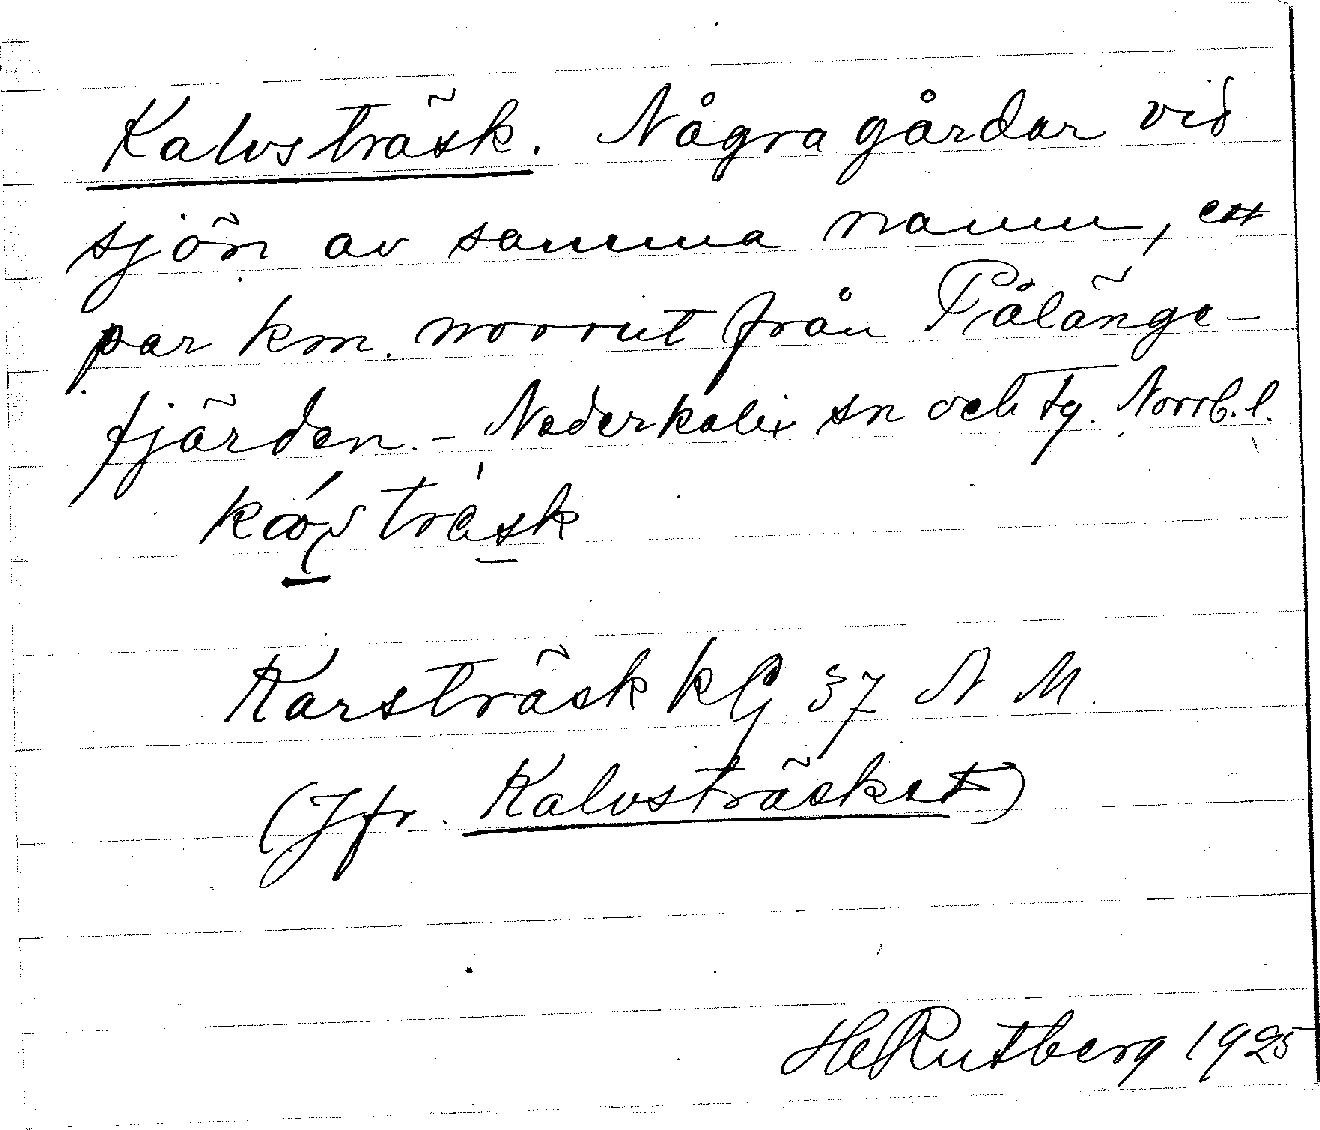 Kalvsträsk. Några gårdar vid
sjön av samma namn, ett
par km. norrut från Pålänge-
fjärden. - Nederkalix sn och tg. Norrb. l.
Karsträsk kG 37 N M.
(Jfr. Kalvsträsket)
HRutberg 1925